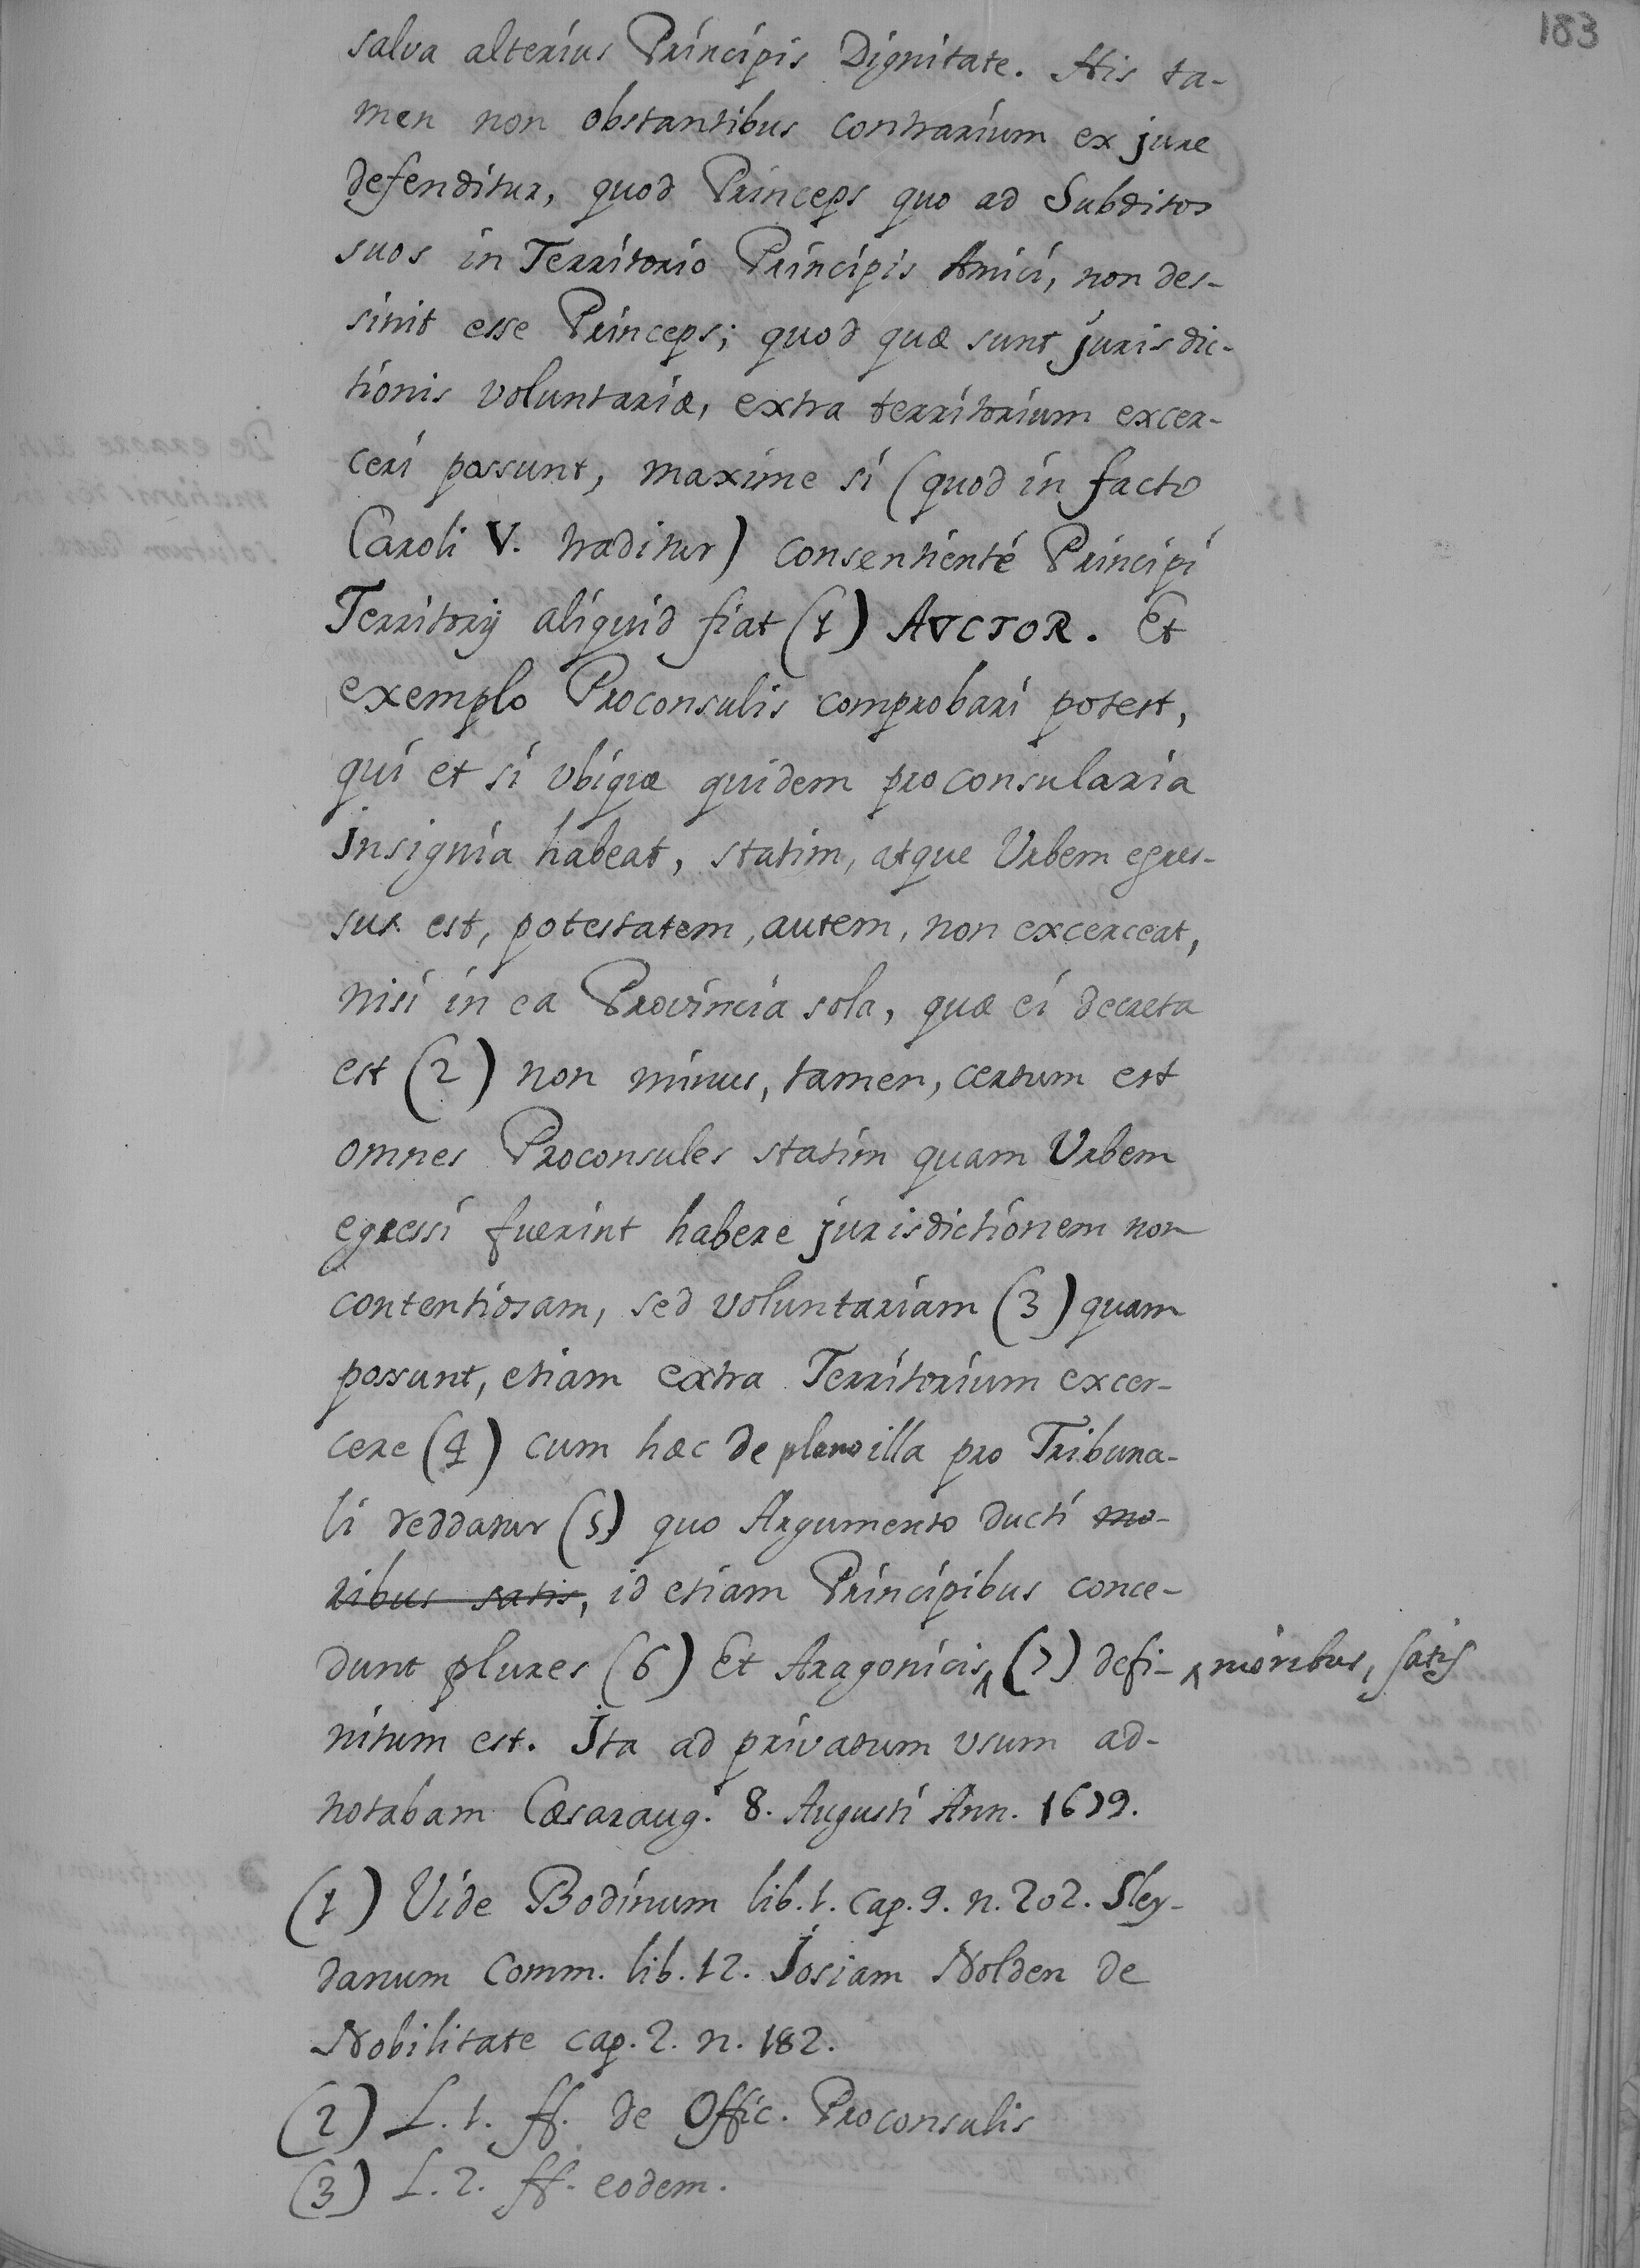 183
salva alterius Principis Dignitate. His ta-
men non obstantibus contrarium ex jure
defenditur, quod Princeps quo ad Subditos
suos in Territorio Principis Amici, non des-
sinit esse Princeps; quod quæ sunt jurisdic-
tionis voluntariæ, extra territorium excer-
ceri possunt, maxime si (quod in facto
Caroli V. traditur) consentienté Principi
Territorij aliquid fiat (1) AVCTOR. Et
exemplo Proconsulis comprobari potest,
qui et si vbique quidem proconsularia
jnsignia habeat, statim, atque Urbem egres-
sus est, potestatem, autem, non excerceat,
nisi in ea Provincia sola, quæ ei decreta
est (2) non minus, tamen, certum est
omnes Proconsules statim quam Urbem
egressi fuerint habere jurisdictionem non
contentiosam, sed voluntariam (3) quam
possunt, etiam extra Territorium excer-
cere (4) cum hæc de plano illa pro Tribuna-
li reddatur (5) quo Argumento ducti mo-
ribus satis, id etiam Principibus conce-
dunt plures (6) Et Aragonicis ^ (7) defi- ^ moribus, satis
nitum est. Ita ad privatum vsum ad-
notabam Cæsaraug. 8. Augusti Ann. 1679.
(1) Vide Bodinum lib. 1. cap. 9. n. 202. Sley-
danum Comm. lib. 12. Josiam Nolden de
Nobilitate cap. 2. n. 182.
(2) L. 1. ff. de Offic. Proconsulis
(3) L. 2. ff. eodem.